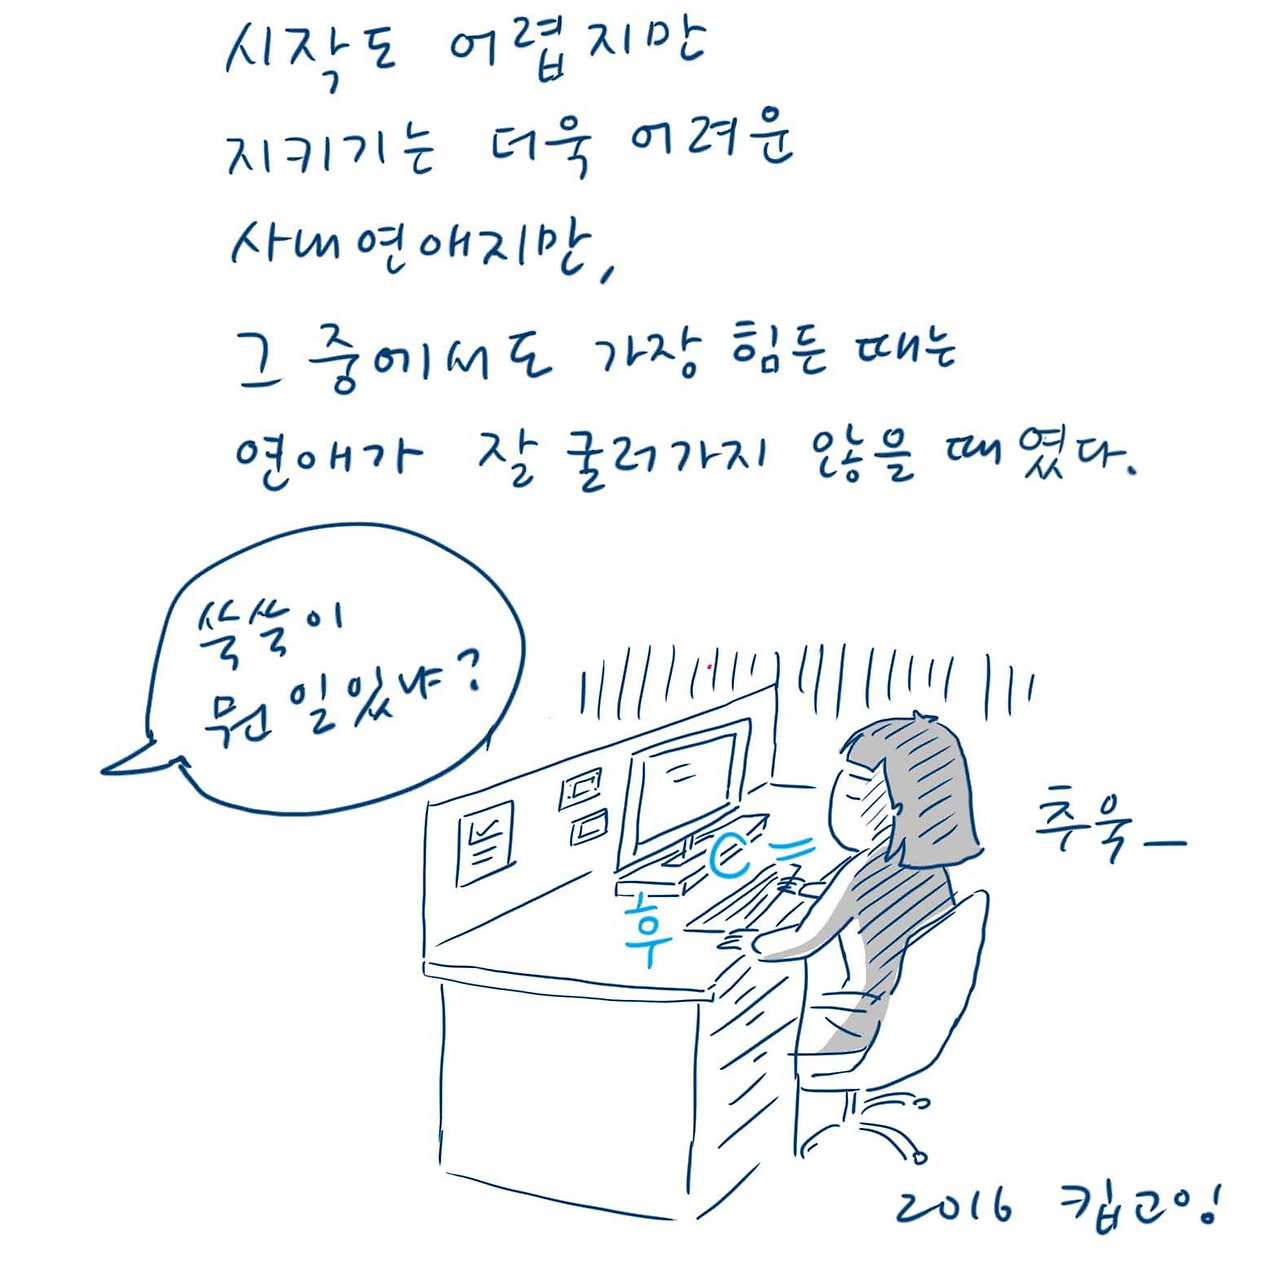 시작도 어렵지만
지키기는 더욱 어려운
사내연애지만,
그 중에서도 가장 힘든 때는
연애가 잘 굴러가지 않을 때였다.
쑥쑥이
뭔 일 있냐?
추욱—
후
2016 킵고잉!